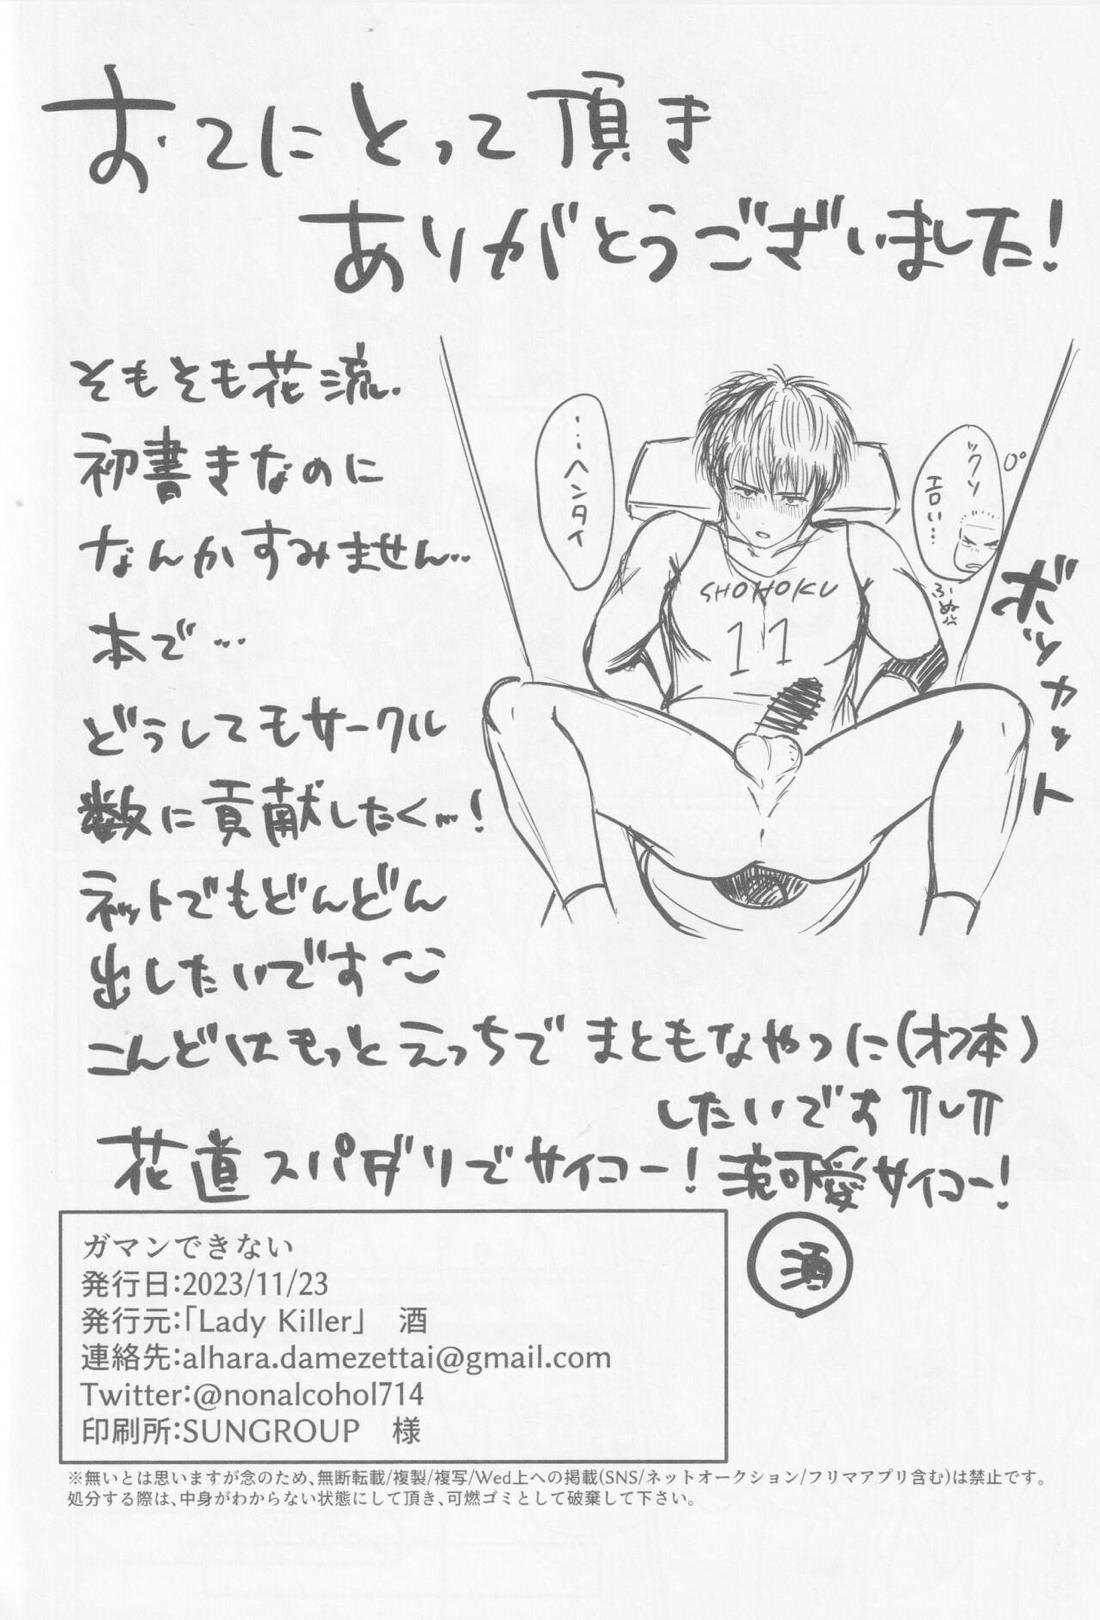 おてにとって頂き
ありがとうございました!
そもそも花流.
初書きなのに
なんかすみません…
本で…
どうしてもサークル
数に貢献したく…!
ネットでもどんどん
出したいです
…ヘンタイ
ックソ
エロい…
ふぬ
ボッカット
SHOHOKU
11
こんどはもっとえっちでまともなやつに(オフ本)
したいです
花道スパダリでサイコー!流可愛サイコー!
酒
ガマンできない
発行日:2023/11/23
発行元:「Lady Killer」 酒
連絡先:alhara.damezettai@gmail.com
Twitter:@nonalcohol714
印刷所:SUNGROUP 様
※無いとは思いますが念のため、無断転載/複製/複写/Wed上への掲載(SNS/ネットオークション/フリマアプリ含む)は禁止です。
処分する際は、中身がわからない状態にして頂き、可燃ゴミとして破棄して下さい。